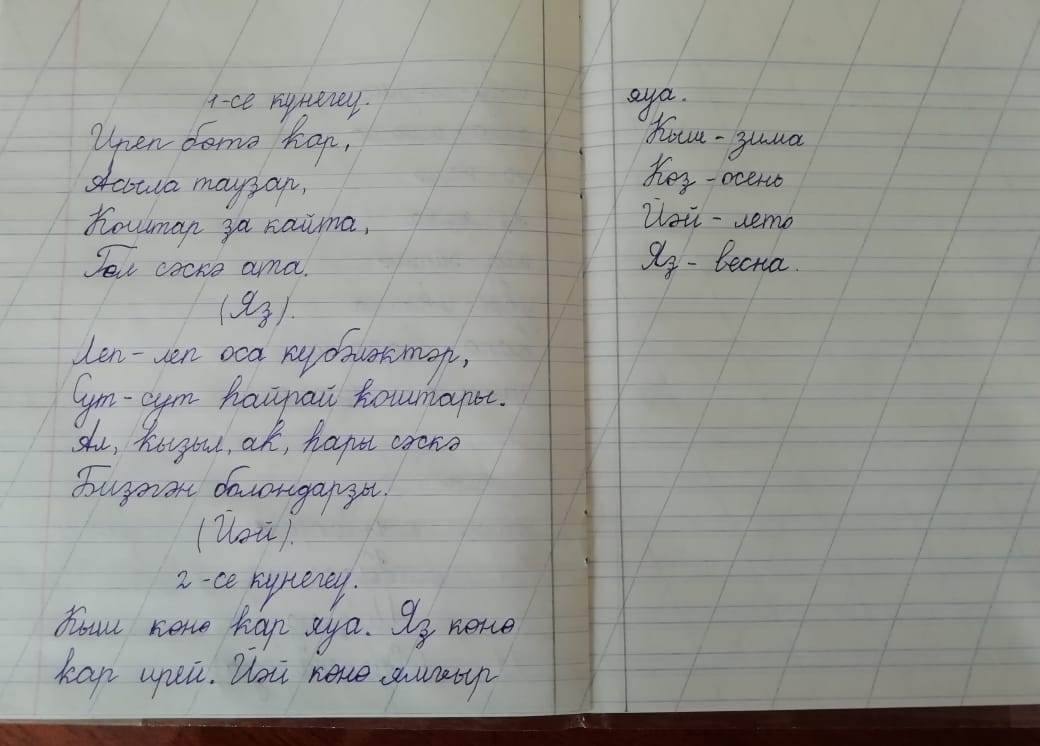 1-се күнегеү.
Иреп бөтә ҡар,
Асыла таузар,
Ҡоштар за кайта,
Гөл сәскә ата.
(Яз).
Леп-леп оса күбәләктәр,
Сут-сут һайрай ҡоштары.
Ал, ҡызыл, аҡ, һары сәскә
Бизәгән болондарзы.
(Йәй).
2-се күнегеү.
Ҡыш көнө ҡар яуа. Яз көнө
ҡар ирей. Йәй көнө ямғыр
яуа.
Ҡыш - зима
Көз - осень
Йәй - лето
Яз - весна.